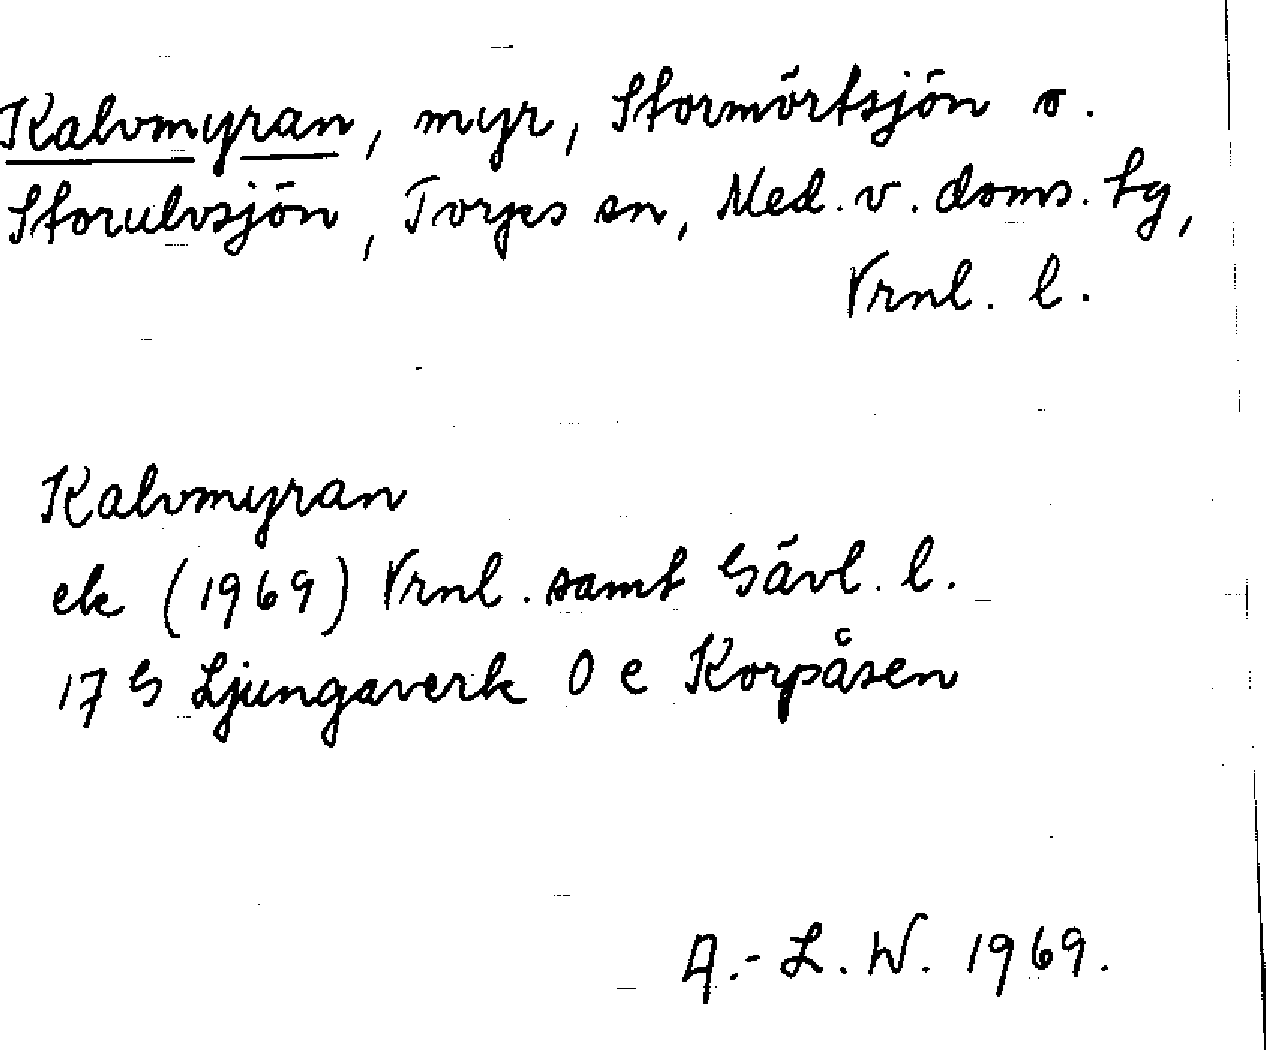 Kalvmyran, myr, Stormörtsjön o.
Storulvsjön, Torps sn, Med. v. doms. tg,
Vrnl. l.
Kalvmyran
ek (1969) Vrnl. samt Gävl. l.
17 G Ljungaverk 0 e Korpåsen
A.-L. W. 1969.